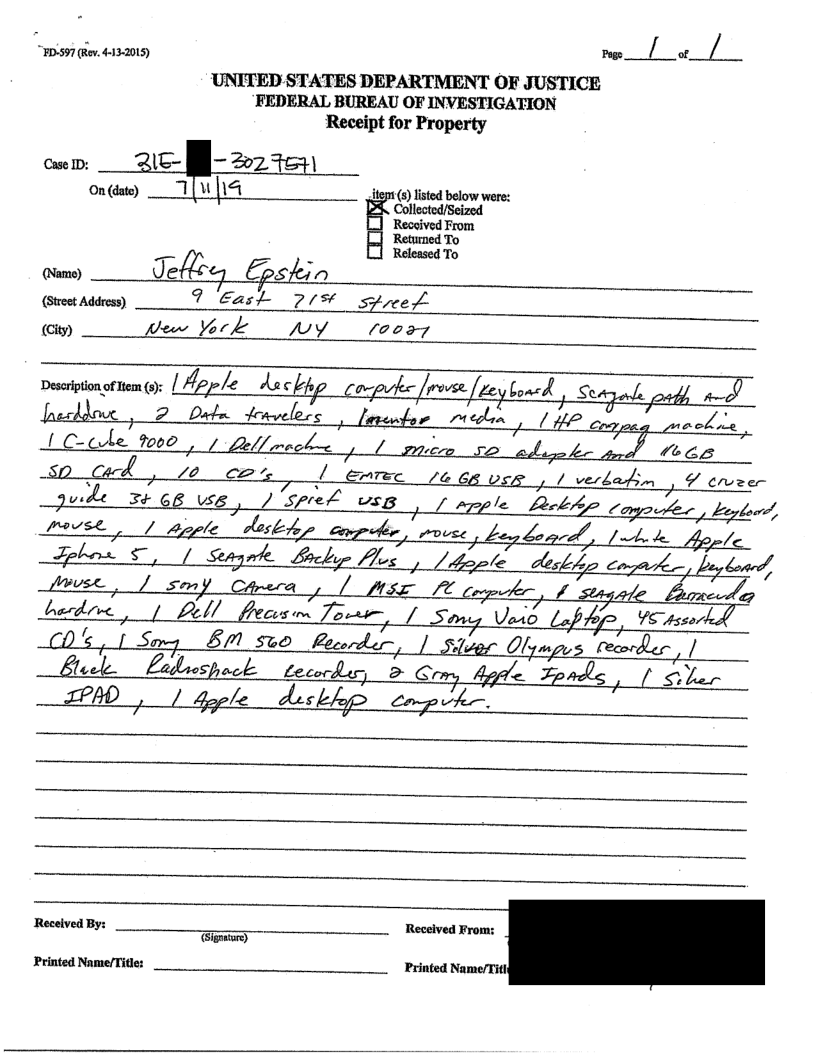 FD-597 (Rev. 4-13-2015)
Page 1 of 1
UNITED STATES DEPARTMENT OF JUSTICE
FEDERAL BUREAU OF INVESTIGATION
Receipt for Property
Case ID: 31E- -3027571
On (date) 7/11/19
item (s) listed below were:
Collected/Seized
Received From
Returned To
Released To
(Name) Jeffrey Epstein
(Street Address) 9 East 71st Street
(City) New York NY 10021
Description of Item (s): 1 Apple desktop computer/mouse/keyboard, Seagate path and
harddrive, 2 Data travelers, 1 media, 1 HP compaq machine,
1 C-cube 9000, 1 Dell machine, 1 micro SD adapter and 16 GB
SD Card, 10 CD's, 1 EMTEC 16 GB USB, 1 verbatim, 4 cruzer
guide 38 GB USB, 1 USB, 1 Apple Desktop computer, keyboard,
mouse, 1 Apple desktop computer, mouse, keyboard, 1 white Apple
Iphone 5, 1 Seagate Backup Plus, 1 Apple desktop computer, keyboard,
mouse, 1 Sony Camera, 1 MSI PC computer, Seagate Barracuda
hardrive, 1 Dell Precision Tower, 1 Sony Vaio Laptop, 45 Assorted
CD's, 1 Sony BM 560 Recorder, 1 Silver Olympus recorder, 1
Black Radioshack recorder, 2 Gray Apple Ipads, 1 Silver
IPAD, 1 Apple desktop computer.
Received By:
(Signature)
Received From:
Printed Name/Title:
Printed Name/Titl